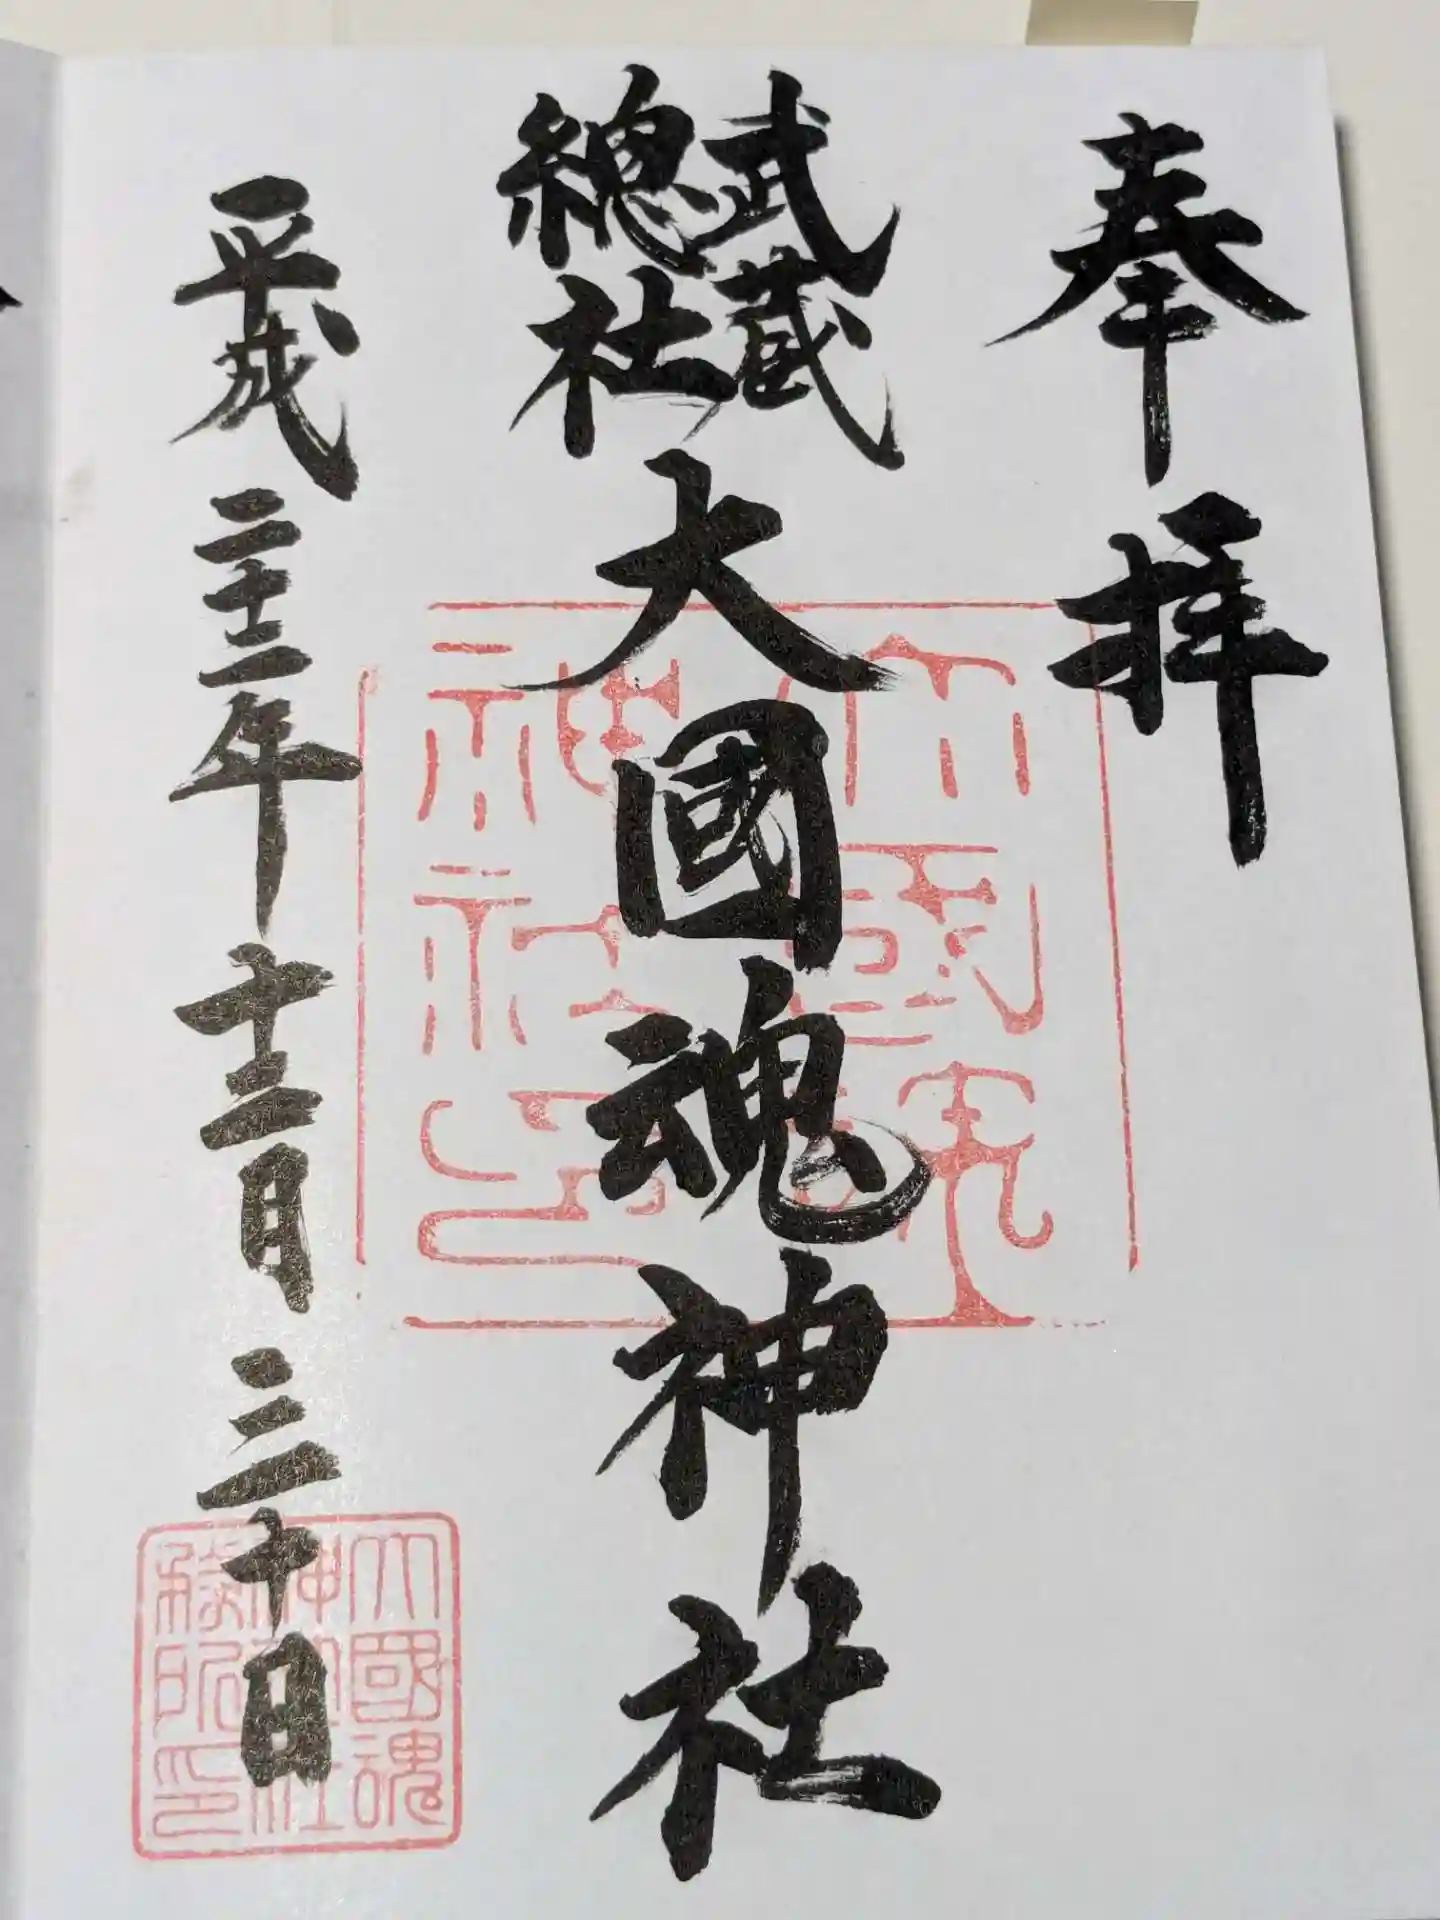 奉拝
武蔵
總社
大國魂神社
平成二十二年十二月三十日
大國魂
神社印
大國魂
神社社
務所印